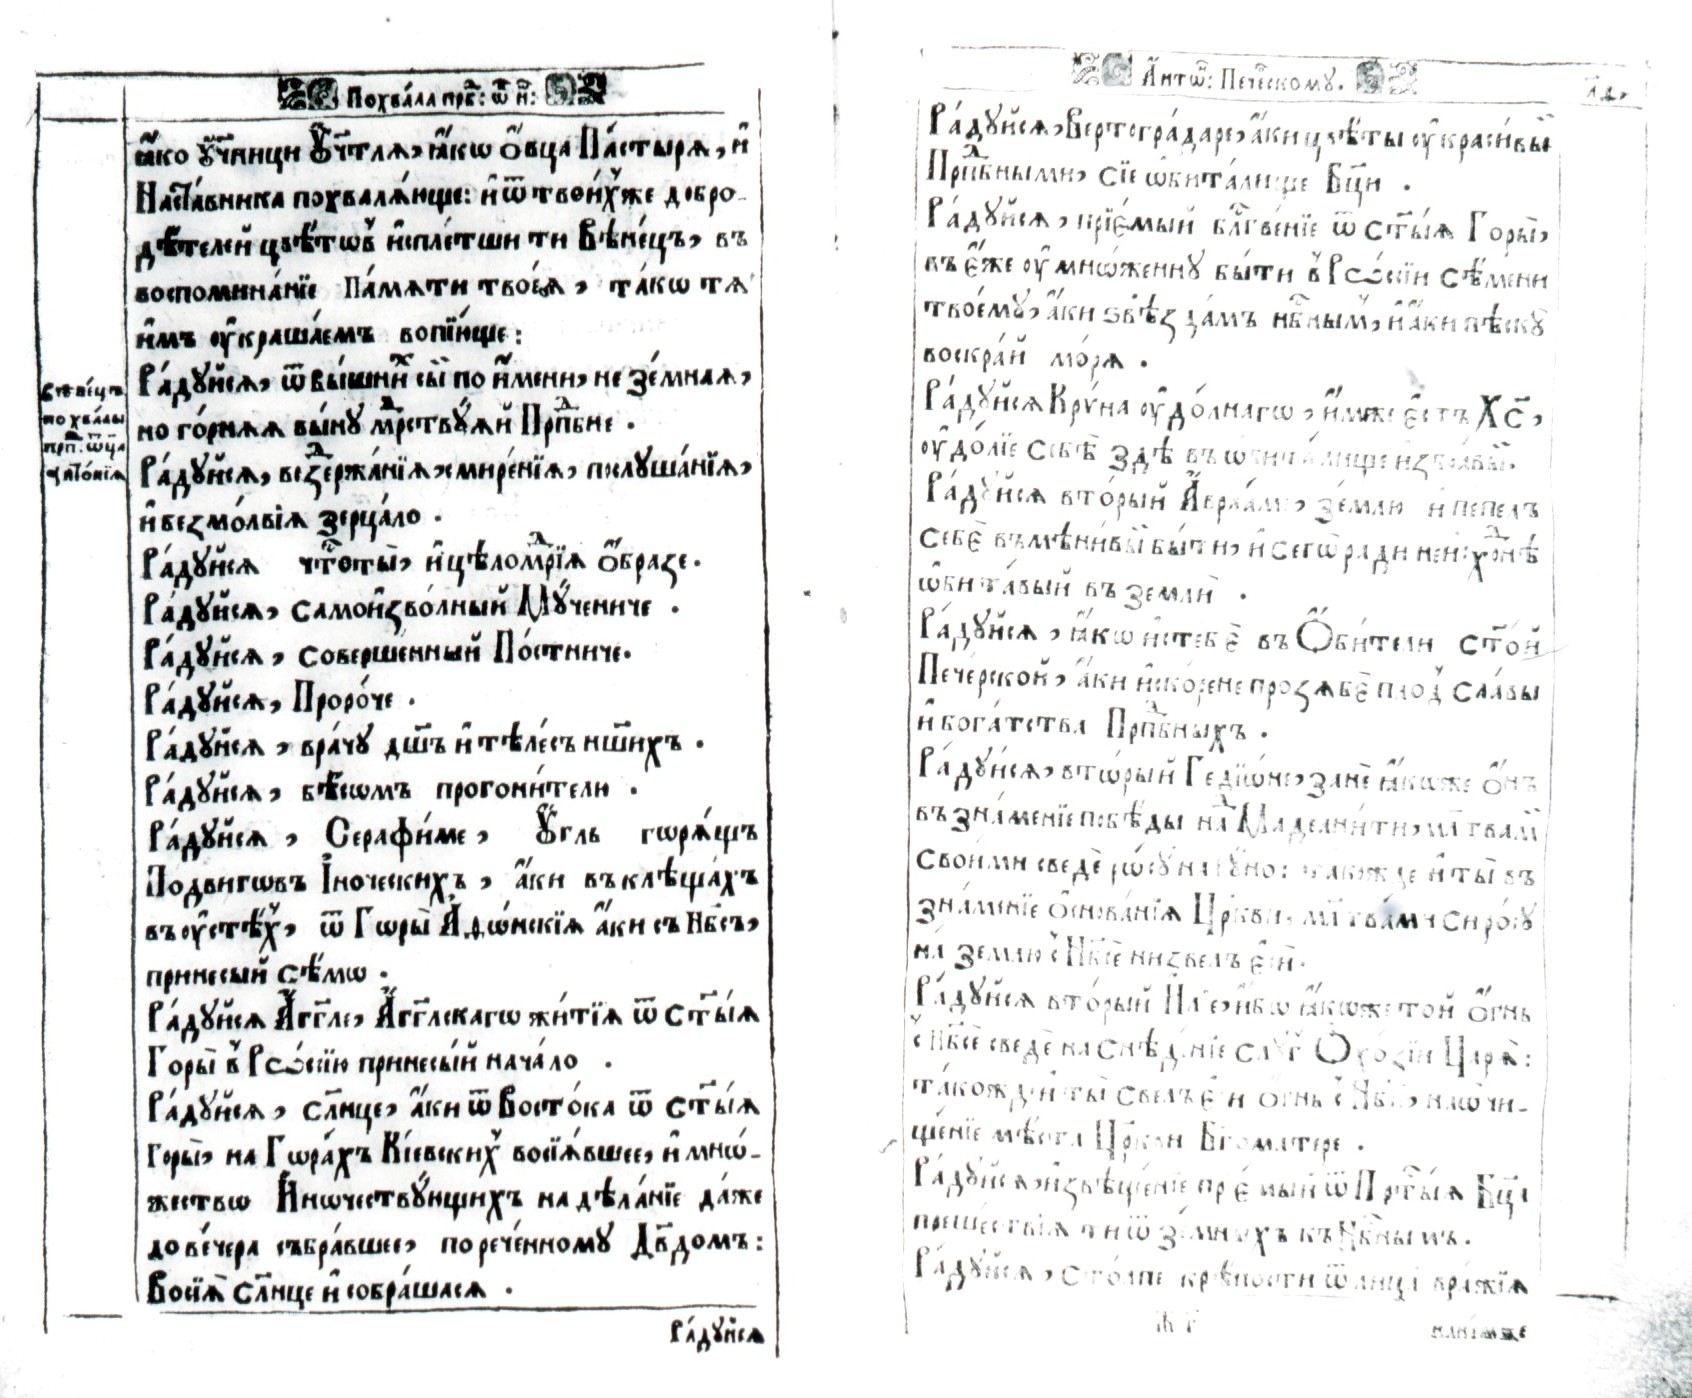 Похвала прⷣб: ѿ н҃:
ꙗ҆́ко ᲂу҆ченици Оу҆чт҃лѧ, ꙗ҆́кѡ ѻ҆вца Па́стырѧ, и҆
Наста́вника похвалѧ́юще: и҆ ѿ твои́хже добро-
дѣ́телей цвѣ́тѡвъ и҆сплє́тши ти Вѣне́цъ, въ
воспомина́нїе Па́мѧти твоеѧ̀, та́кѡ тѧ
и҆́мъ ᲂу҆краша́емъ вопїю́ще:
Ра́дуйсѧ, ѿ вы́шних сы́й по и҆́мени, не зе́мнаѧ,
но го́рнѧѧ вы́ну мⷣрствуѧй Прпⷣбне.
Ра́дуйсѧ, возⷣержа́нїѧ, смире́нїѧ, послуша́нїѧ,
и҆ безмо́лвїѧ зерца́ло.
Ра́дуйсѧ чⷭ҇тоты̀, и҆ цѣломⷣрїѧ ѻ҆́бразе.
Ра́дуйсѧ, самоизво́лный Мꙋ́чениче.
Ра́дуйсѧ, соверше́нный По́стниче.
Ра́дуйсѧ, Проро́че.
Ра́дуйсѧ, вра́чу дш҃ъ и҆ тѣле́съ нш҃ихъ.
Ра́дуйсѧ, бѣ́сѡмъ прогони́телю.
Ра́дуйсѧ, Серафи́ме, Оу҆́гль гѡрѧ́щъ
По́двигѡвъ І҆ноческихъ, а҆́ки въ клѣща́хъ
въ ᲂу҆стѣ́х, ѿ Гѡры̀ А҆дѡ́нскїѧ а҆́ки съ Нб҃съ,
принесый сѣ́мѡ.
Ра́дуйсѧ А҆́гг҃ле, А҆́гг҃лскагѡ жи́тїѧ ѿ ст҃ы́ѧ
Горы̀ в Рѡссі́ю принесы́й нача́ло.
Ра́дуйсѧ, сл҃нце, а҆́ки ѿ Восто́ка ѿ ст҃ы́ѧ
Горы̀, на Гѡра́хъ Кі́евских возсїѧ́вшее, и҆ мнѡ́-
жествѡ И҆нѡчествꙋющихъ на дѣла́нїе да́же
до ве́чера събра́вшее, по рече́нному Дв҃домъ:
Возсїѧ̀ сл҃нце и҆ собра́шасѧ.
Ра́дуйсѧ
Стѣ ве́цъ
похва́лы
прпⷣ: ѿца
А҆нто́нїѧ
А҆нтѡ: Пече́рскому.
л҃д,
Ра́дуйсѧ, Вертогра́даре, а҆́ки цвѣ́ты ᲂу҆краси́вый
Прпⷣбными, сїе ѡ҆бита́лище Бц҃ы.
Ра́дуйсѧ, прїе́мый блⷭ҇ве́нїе ѿ ст҃ы́ѧ Горы̀,
въ є҆́же ᲂу҆мнѡ́женну бы́ти в Рѡссі́и сѣ́мени
твоему̀, а҆́ки ѕвѣзда́мъ нбⷭ҇ным, и҆ а҆́ки пѣскꙋ̀
воскра́й мо́рѧ.
Ра́дуйсѧ Кру́на ᲂу҆до́лнагѡ, и҆́мже є҆́сть Хс҃,
ᲂу҆до́лїе себѣ̀ здѣ̀ въ ѡ҆бита́лище и҆збра́вый.
Ра́дуйсѧ вто́рый А҆враа́ме, зе́млю и҆ пе́пелъ
себѐ въмѣни́вый бы́ти, и҆ сегѡ̀ ради
ѡ҆бита́вый въ землѝ.
Ра́дуйсѧ, ꙗ҆́кѡ и҆з тебѐ въ Ѻ҆би́тели ст҃о́й
Пече́рской, а҆́ки и҆з ко́рене прозѧбѐ плод сла́вы
и҆ бога́тства Прпⷣбныхъ.
Ра́дуйсѧ, втѡ́рый Гедїѡ́не, занѐ ꙗ҆́коже ѻ҆́нъ
въ зна́менїе побѣ́ды на Мадиани́ти, мл҃твам
свои́ми сведѐ рѡсу̀ на рꙋно̀: такожде и҆ ты̀ въ
зна́менїе ѻ҆снова́нїѧ Цр҃кви, мл҃тва́ми си ро́су
на́ землю с Нб҃се низве́лъ є҆сѝ.
Ра́дуйсѧ вто́рый И҆лїе, и҆́бо ꙗ҆́коже той ѻ҆гнь
с Нб҃се сведѐ на снѣде́нїе слꙋ́г Ѻ҆хо́зїи Царѧ̀:
та́кожде и҆ ты̀ свелъ є҆сѝ ѻ҆гнь с Нб҃се, на ѡ҆чи-
ще́нїе мѣ́ста Цр҃кви Бг҃ома́тере.
Ра́дуйсѧ, и҆звѣще́нїе прїе́мый ѿ Прчⷭ҇тыѧ Бц҃ы
преше́ствїѧ ти ѿ зе́мныхъ къ Нбⷭ҇нымъ.
Ра́дуйсѧ, сто́лпе крѣ́пости ѿ лица̀ вра́жїѧ